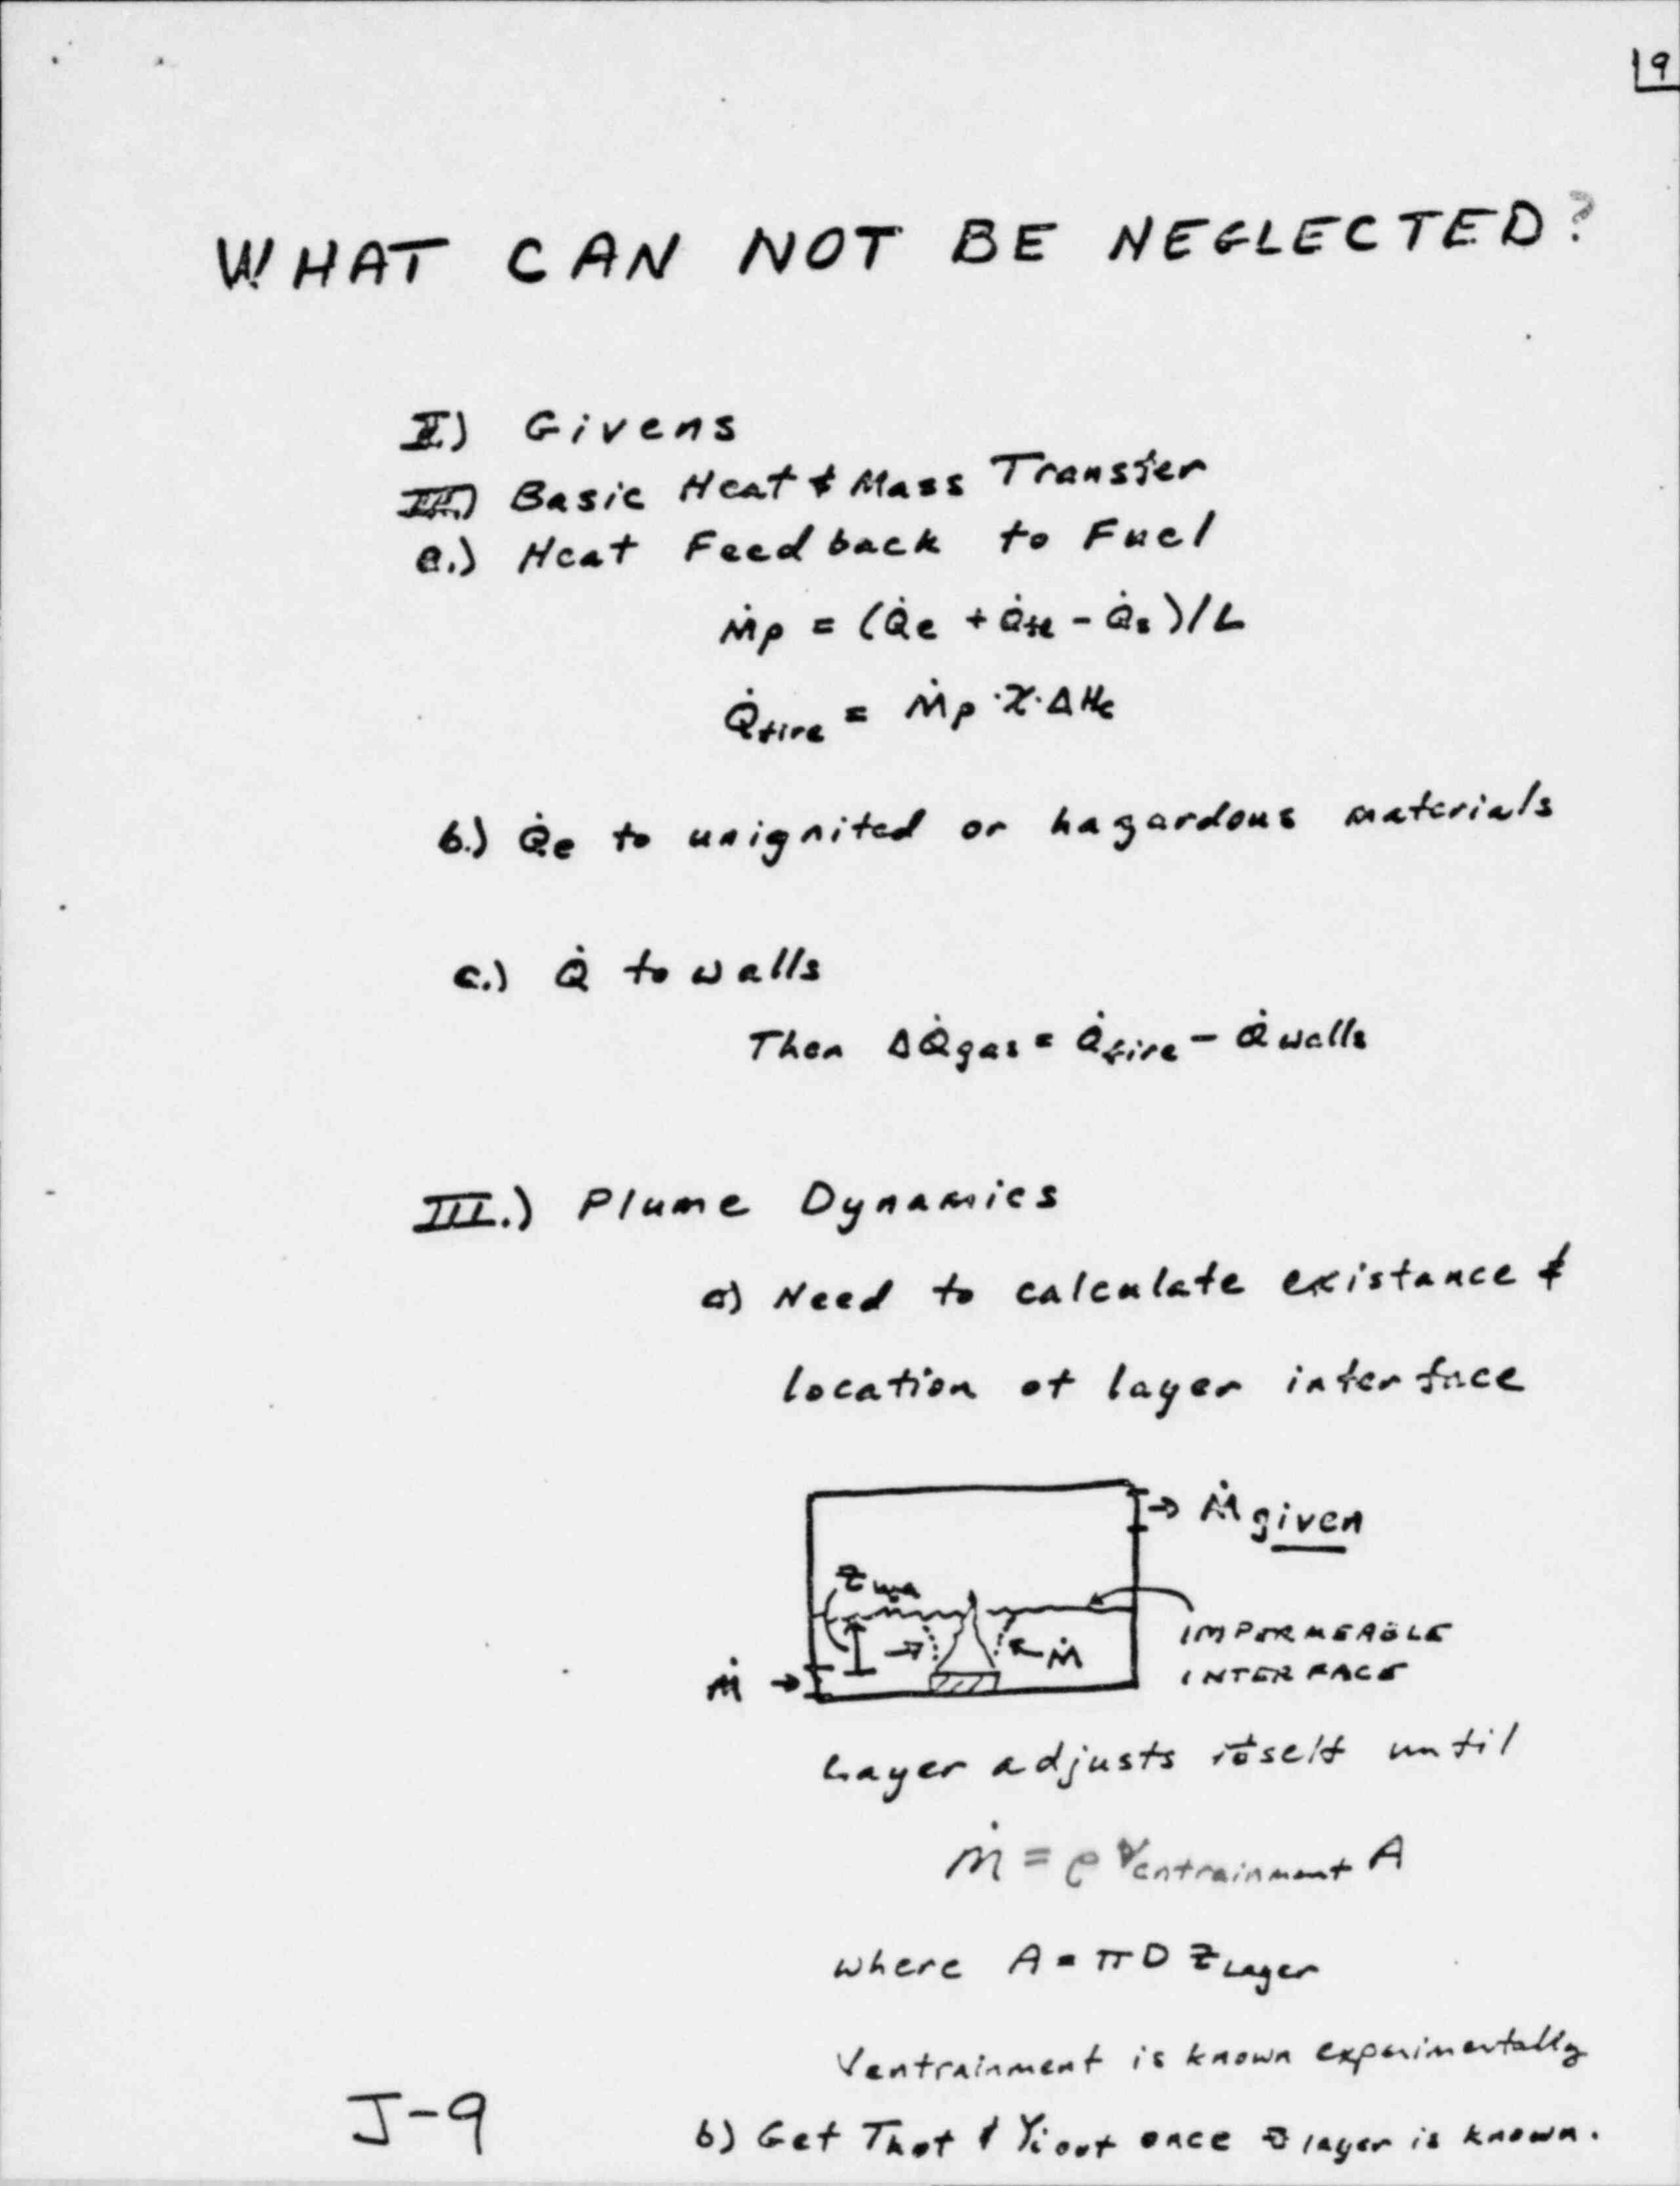 19
WHAT CAN NOT BE NEGLECTED?
I.) Givens
II.) Basic Heat & Mass Transfer
a.) Heat Feedback to Fuel
Ṁp = (Q̇e + Q̇fl - Q̇s)/L
Q̇fire = Ṁp·χ·ΔHc
b.) Q̇e to unignited or hazardous materials
c.) Q̇ to walls
Then ΔQ̇gas = Q̇fire - Q̇walls
III.) Plume Dynamics
a) Need to calculate existance &
location of layer interface
→ Ṁ given
→ ← Ṁ
IMPERMEABLE
INTERFACE
Ṁ →
Layer adjusts itself until
ṁ = ρ Ventrainment A
where A = π D Zlayer
Ventrainment is known experimentally
b) Get Thot & Yi out once Zlayer is known.
J-9